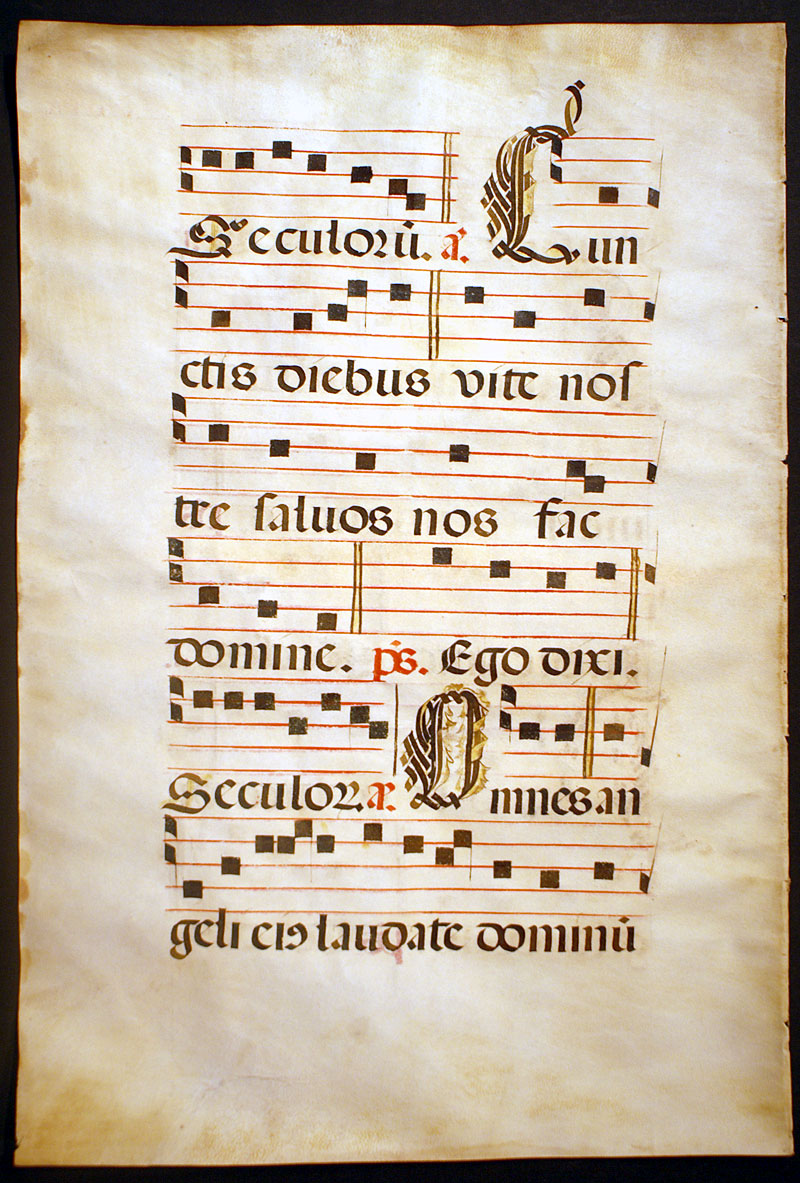 Seculorū. a. Cun
ctis diebus vite nos
tre saluos nos fac
domine. ps. Ego dixi.
Seculoꝝ. a. Omnes an
geli eiꝰ laudate dominū